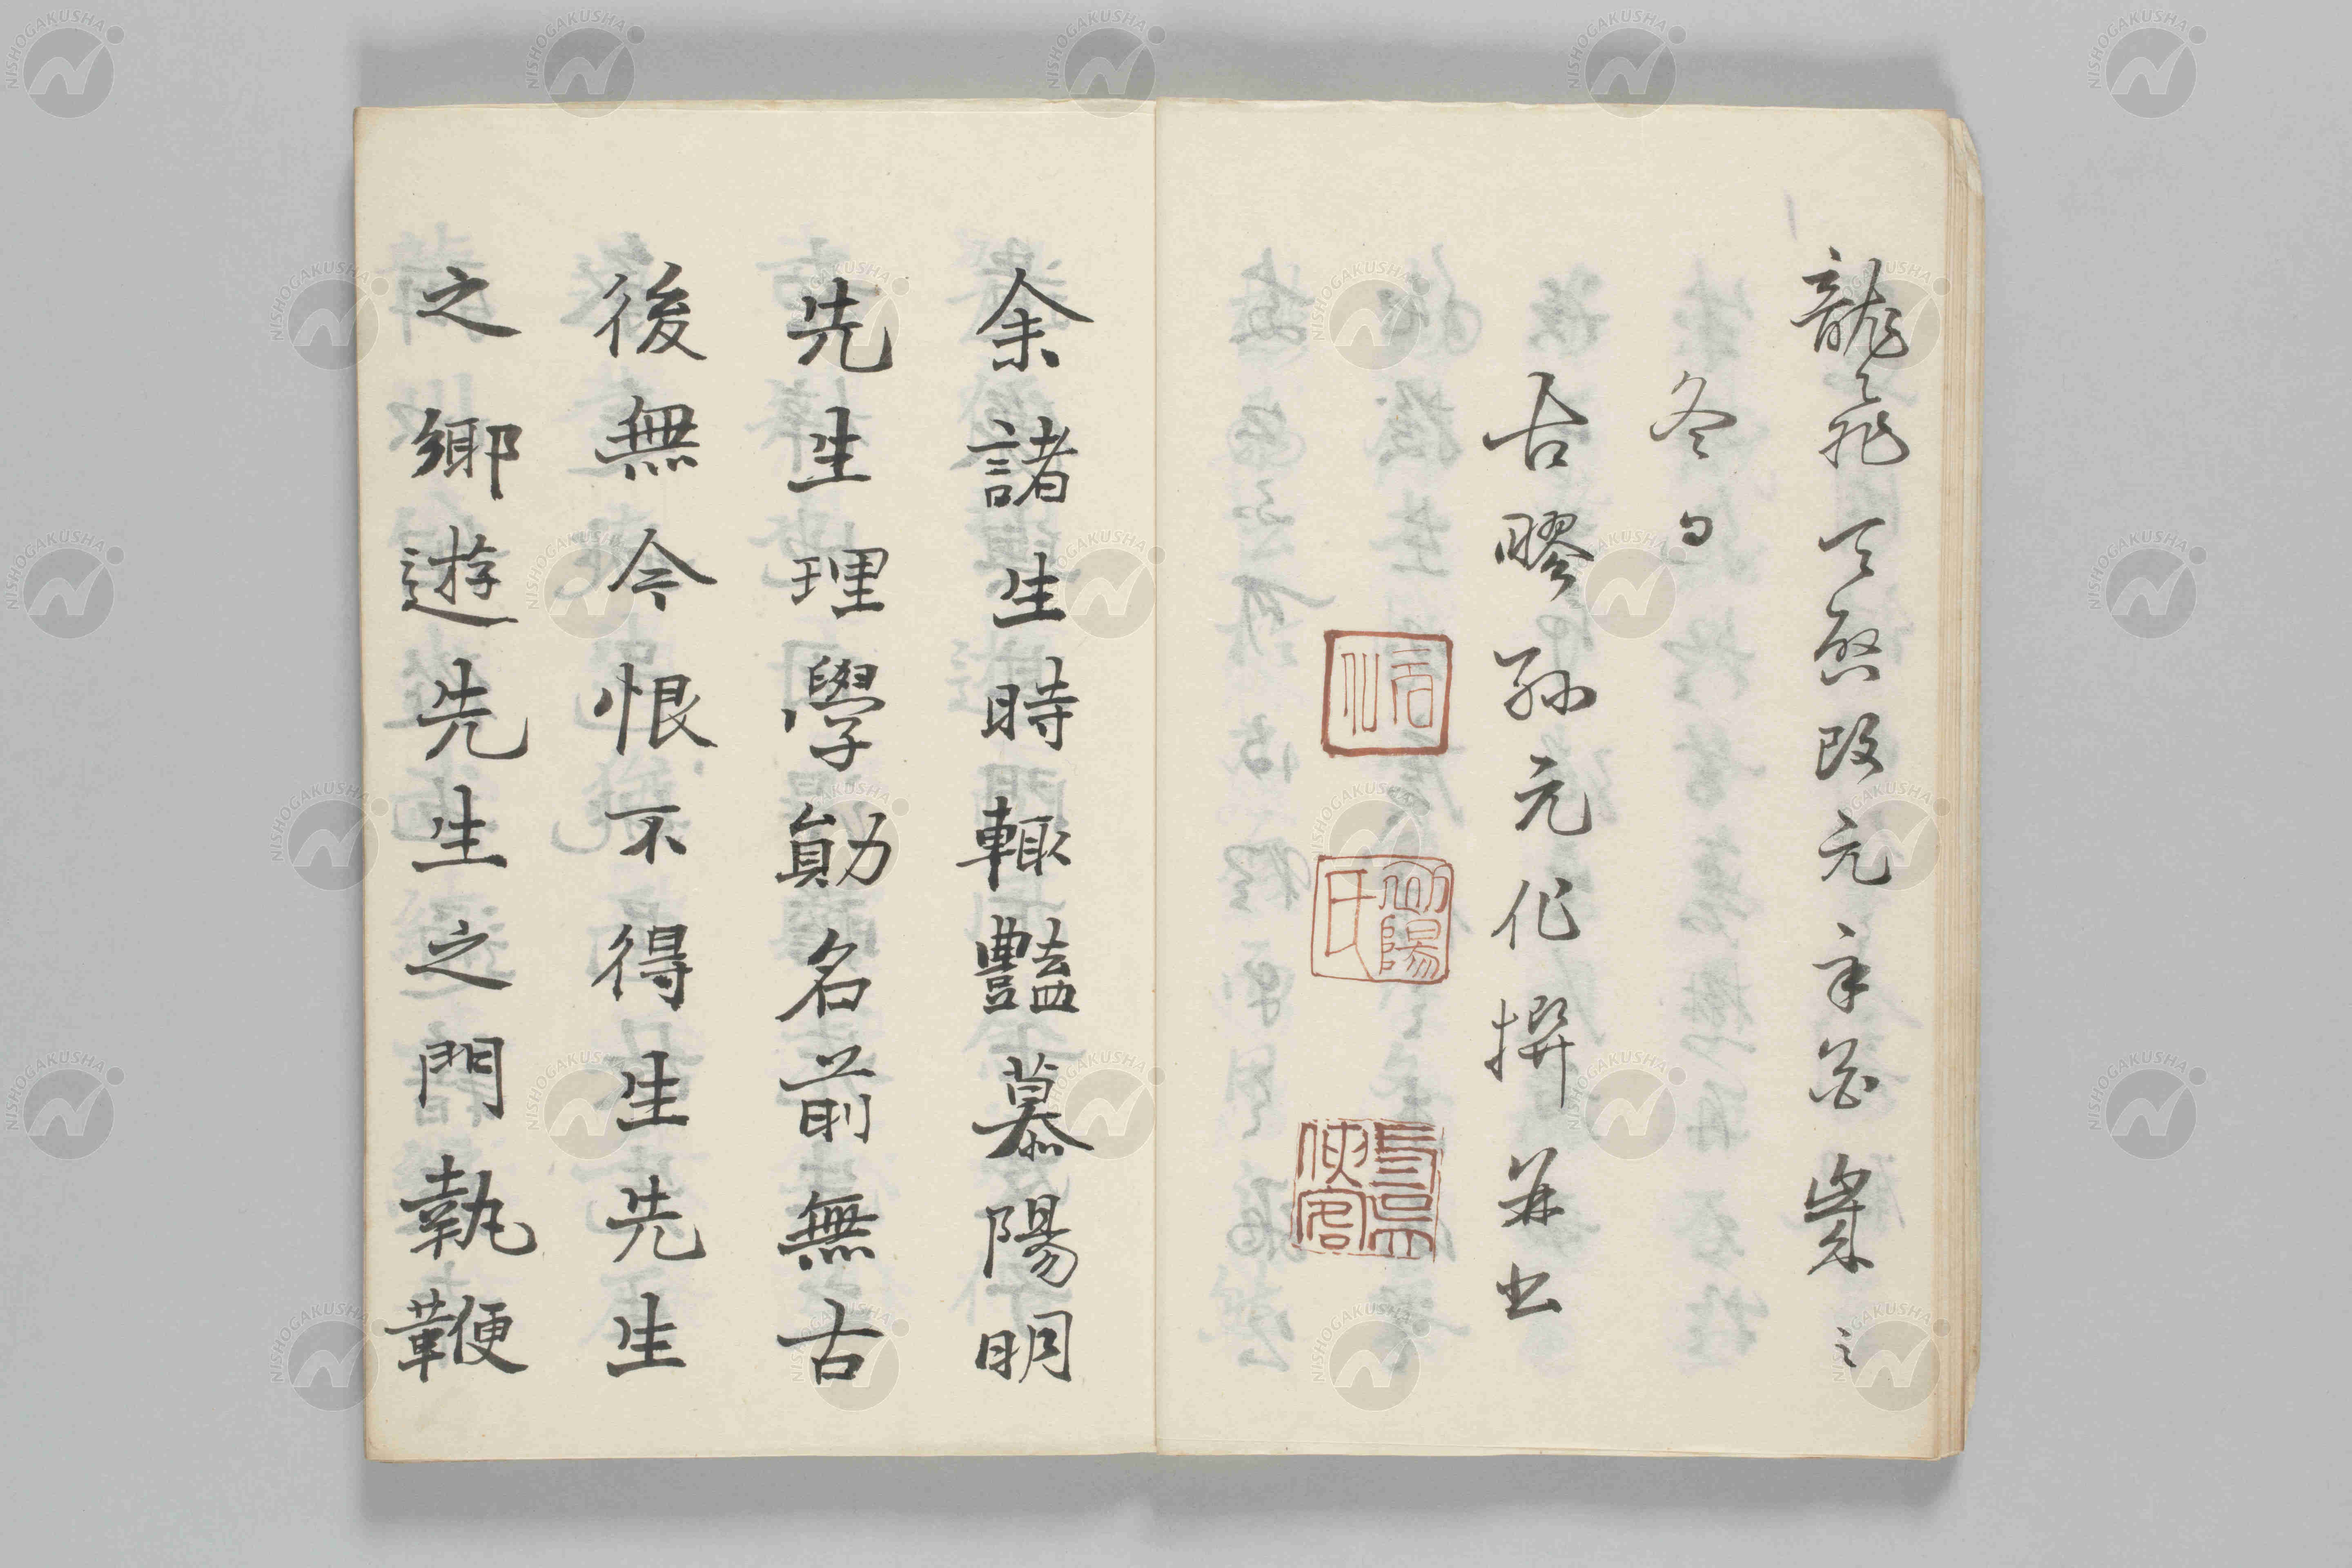 龍飛天啓改元辛酉歲之
冬日
古膠孫元化撰并書
陽
氏
客
余諸生時輙豔慕陽明
先生理學勛名前無古
後無今恨不得生先生
之鄉遊先生之門執鞭
NISHOGAKUSHA